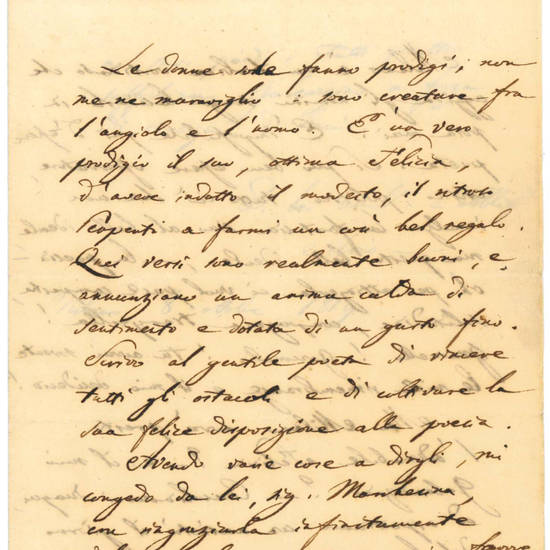 Le donne sole fanno prodigi; non
me ne maraviglio: sono creature fra
l'angiolo e l'uomo. È un vero
prodigio il suo, ottima Felicia,
d'avere indotto il modesto, il ritroso
a farmi un così bel regalo.
Quei versi sono realmente buoni, e
annunziano un anima calda di
sentimento e dotata di un gusto fino.
Scrivo al gentile poeta di vincere
tutti gli ostacoli e di coltivare la
sua felice disposizione alla poesia.
Avendo varie cose a dirgli, mi
congedo da lei, sig. Marchesina,
con ringraziarla infinitamente